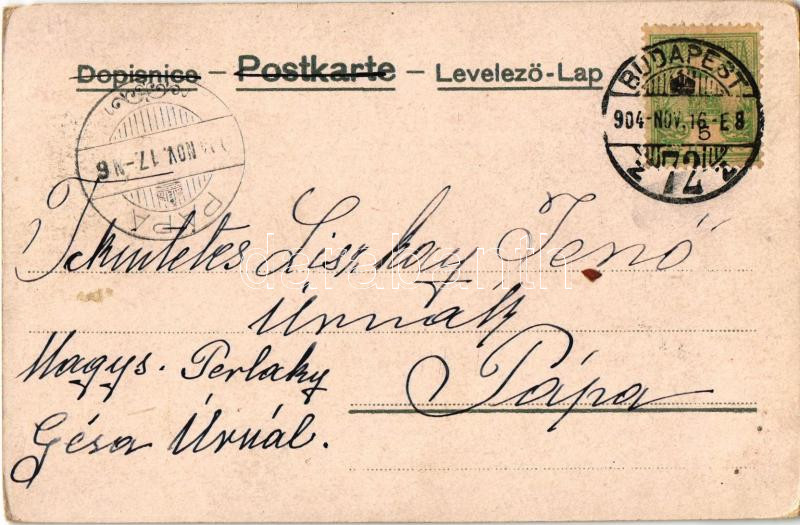 Dopisnice – Postkarte – Levelező-Lap
BUDAPEST
904-NOV.16-E8
72
5
NOV.17.-N6
PÁPA
Tekintetes Liszkay Jenő
Úrnak
Pápa
Nagys. Perlaky
Géza Úrnál.
darabanth